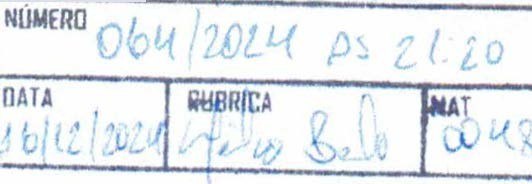 NÚMERO
064/2024 às 21:20
DATA RUBRICA MAT
16/12/2024 0048